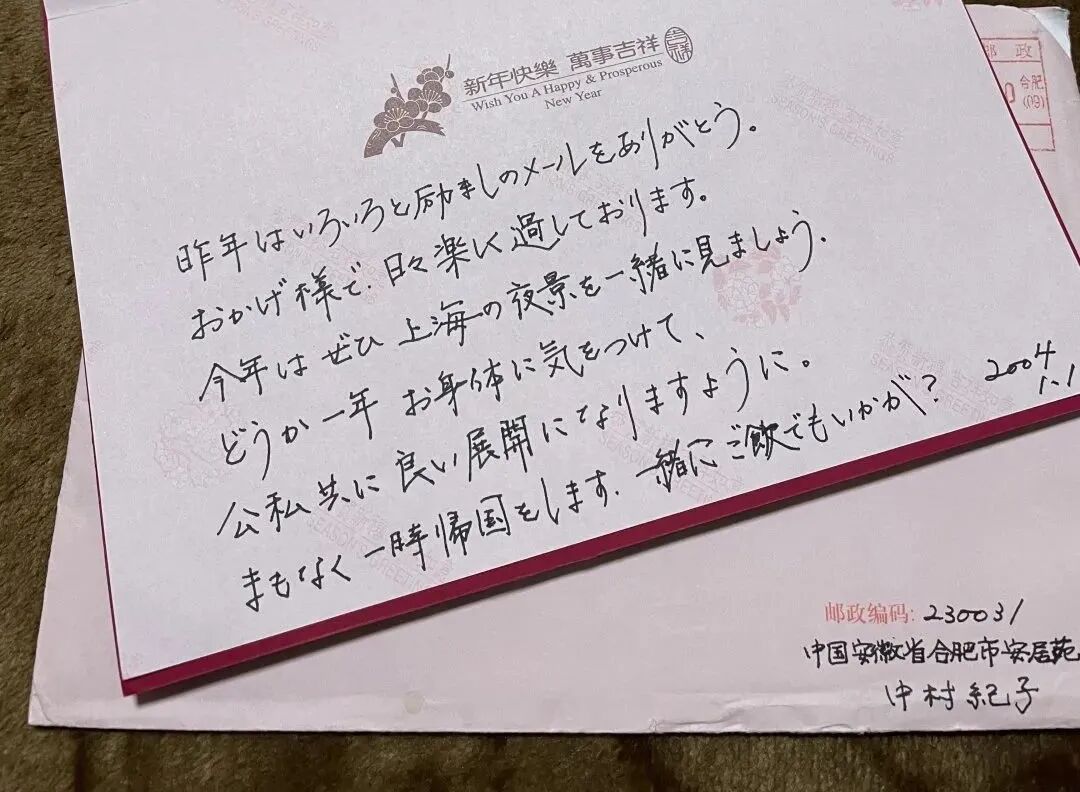 新年快樂 萬事吉祥
吉祥
Wish You A Happy & Prosperous
New Year
昨年はいろいろと励ましのメールをありがとう。
おかげ様で、日々楽しく過しております。
今年はぜひ上海の夜景を一緒に見ましょう.
どうか一年お身体に気をつけて、
公私共に良い展開になりますように。
まもなく一時帰国をします.一緒にご飯でもいかが?
2004
1.1
邮政
0
合肥
(09)
SEASON'S GREETINGS
邮政编码: 230031
中国安徽省合肥市安居苑
中村紀子